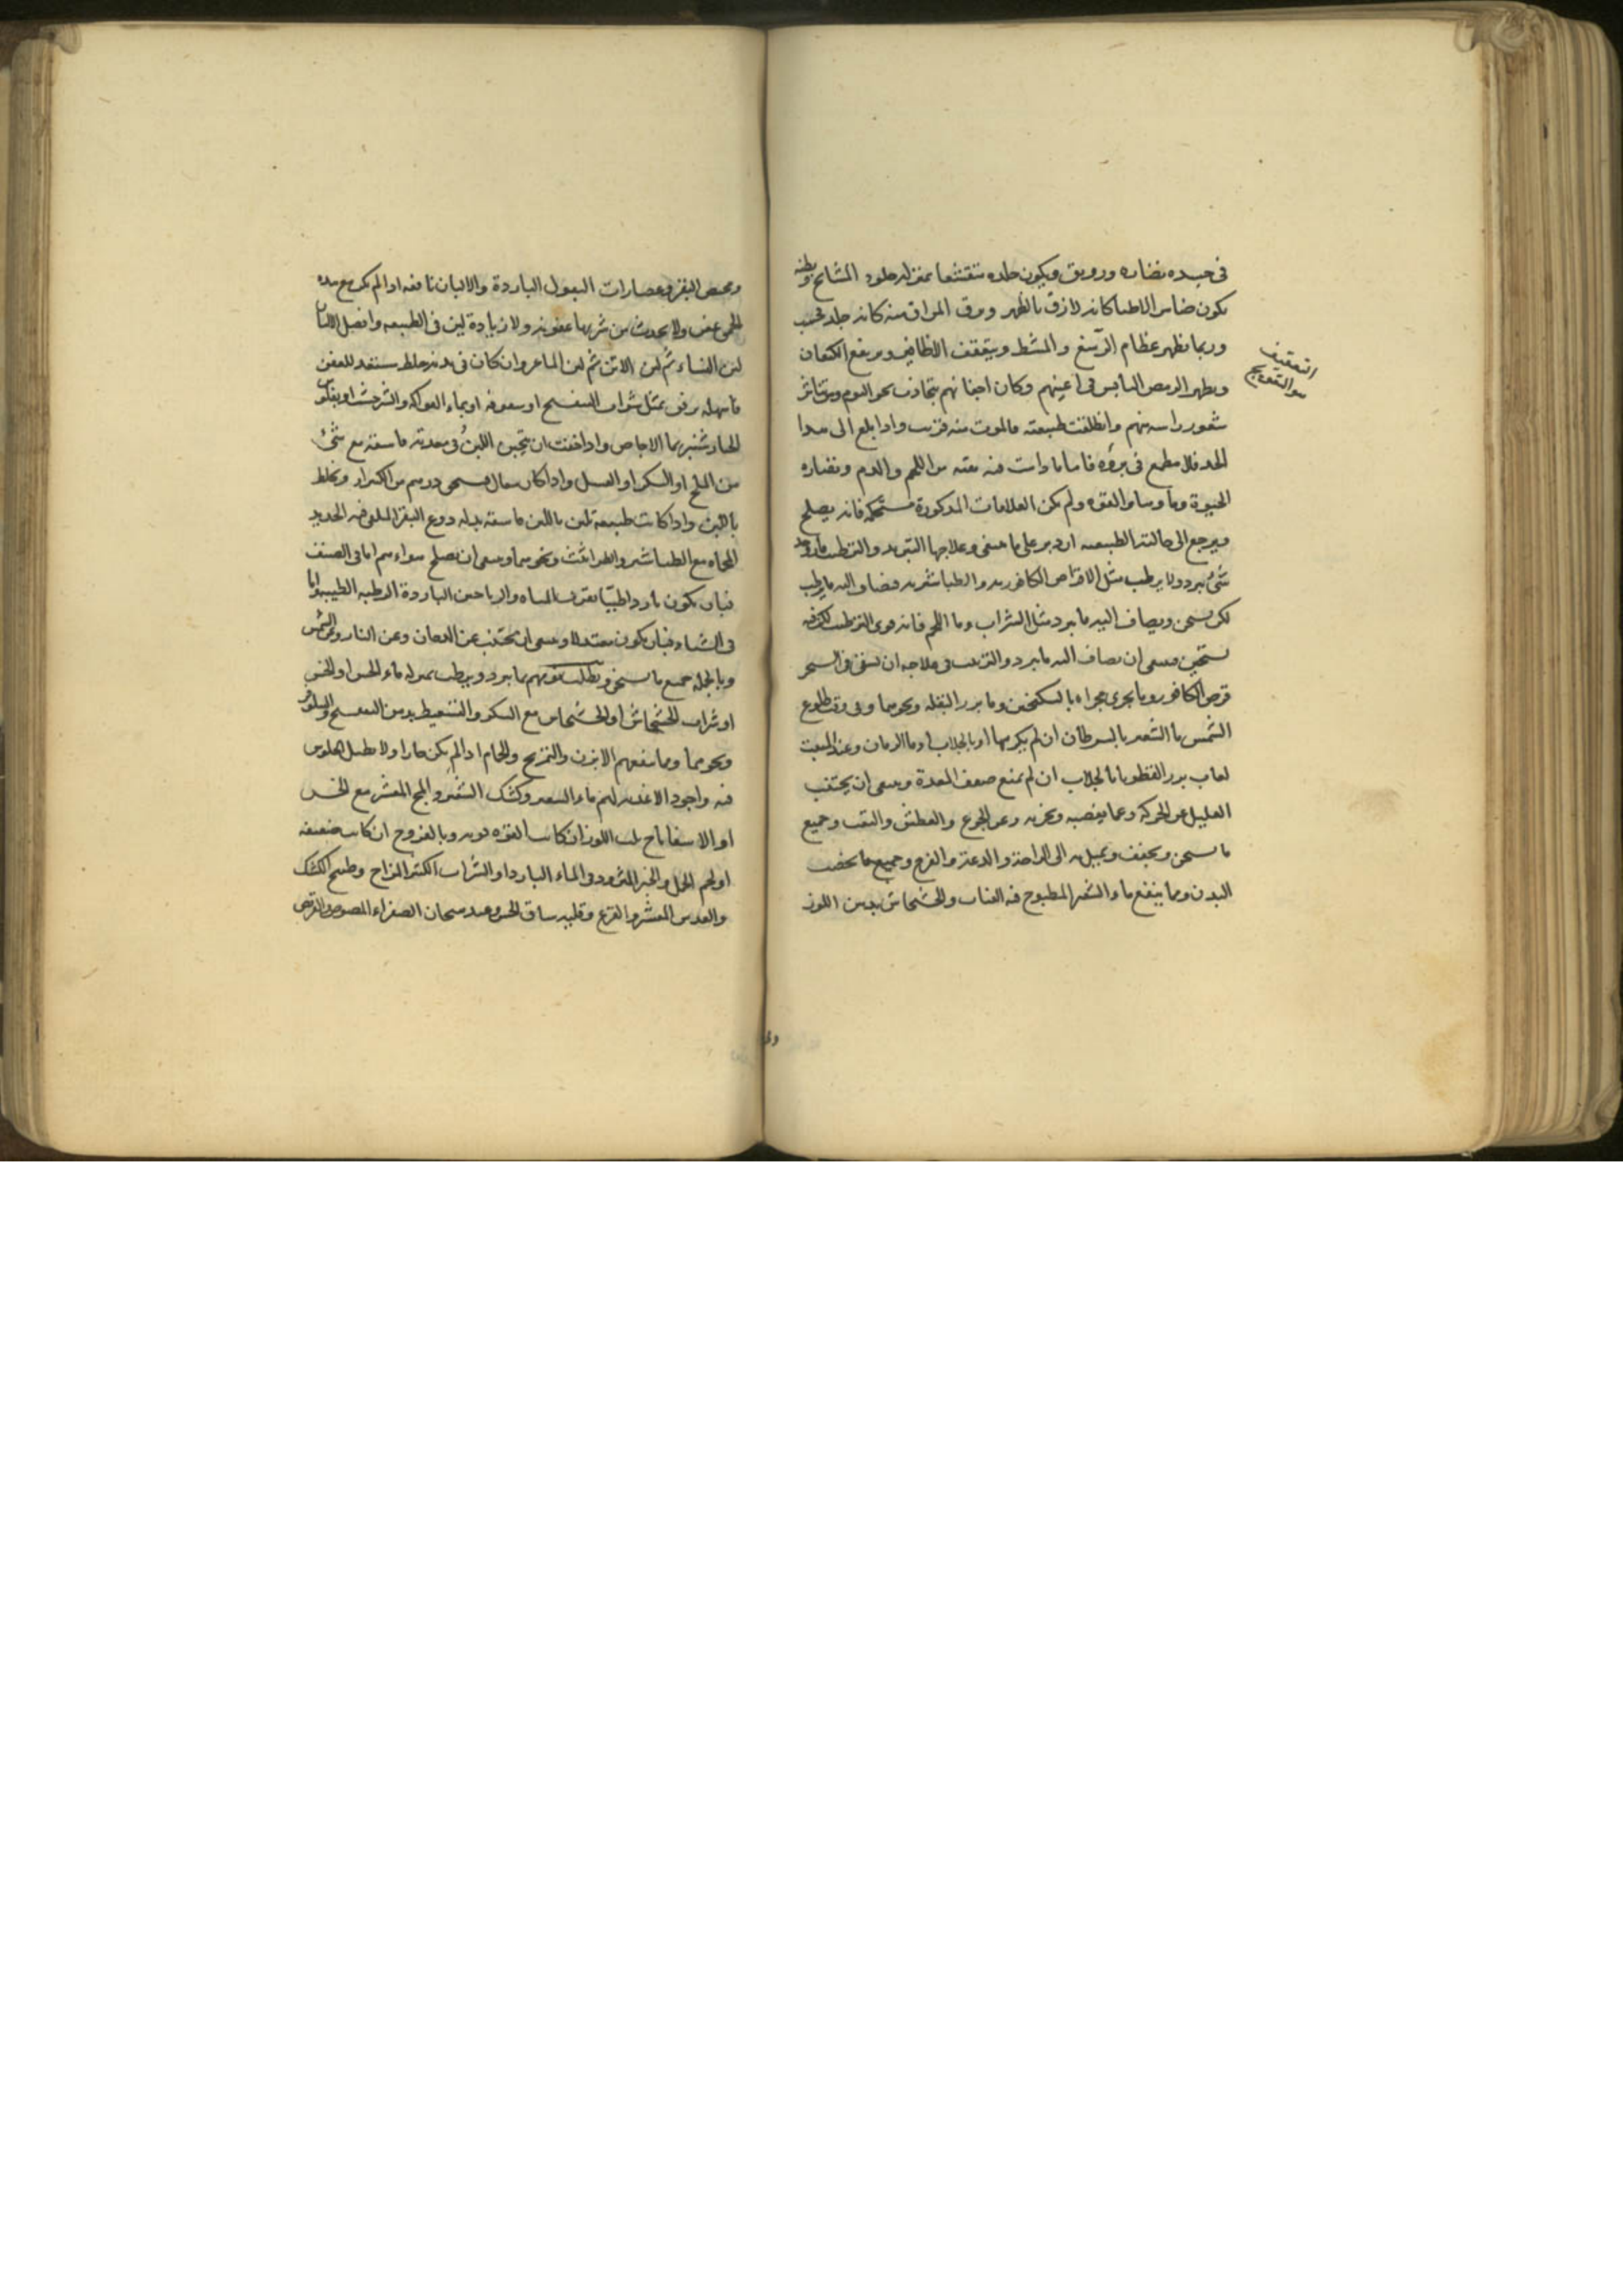 في جسده نضاره ورونق ويكون جلده متقشفا بمنزله جلود المشايخ وبطنه
يكون ضامرا لاطيا كانه لازق بالظهر ومرق المراق منه كانه جلد
وربما تظهر عظام الرسغ والمشط ويتعقف الاظافير ويرتفع الكتفان
ويظهر الرمص اليابس في اعينهم وكان اجفانهم تتجاذب نحو النوم ويتناثر
شعور راسهم وانطلقت طبيعته فالموت منه قريب واذا بلغ الى هذا
الحد فلا مطمع في برؤه فاما ما دامت فيه بقيه من اللحم والدم ونضاره
الحيوة وماء وساير القوه ولم تكن العلامات المذكورة مستحكمه فانه يصلح
ويرجع الى حالته الطبيعيه ان دبر على ما ينبغي وعلاجها التبريد والترطيب
شئ يبرد ولا يرطب مثل الاقراص الكافوريه والطباشيريه فيضاف اليه ما يرطب
لكن يسخن ويضاف اليه ما يبرد مثل الشراب وماء اللحم فانه قوى الترطيب لكن فيه
تسخين فينبغي ان يضاف اليه ما يبرد والترتيب في علاجه ان يسقى في السحر
قرص الكافور وما يجرى مجراه بالسكنجبين وماء بزر البقله ونحوهما وفي وقت طلوع
الشمس ماء الشعير بالسرطان ان لم يكرهها او بالجلاب او ماء الرمان وعند المبيت
لعاب بزر القطونا بالجلاب ان لم يمنع ضعف المعدة وينبغي ان يجتنب
العليل عن الحركه وعما يغضبه ويحزنه وعن الجوع والعطش والتعب وجميع
ما يسخن ويجفف ويميل به الى الراحة والدعة والفرح وجميع ما يخصب
البدن ومما ينفع ماء الشعير المطبوخ فيه العناب والخشخاش بدهن اللوز
التعقيف
هو التعويج
ومخيض البقر وعصارات البقول الباردة والالبان نافعه اذا لم يكن مع هذه
الحمى عفن ولا يحدث من شربها عفونه ولا زيادة لين في الطبيعه وافضل الالبان
لبن النساء ثم لبن الاتن ثم لبن الماعز وان كان في بدنه خلط مستعد للعفن
فاسهله برفق بمثل شراب البنفسج او سفوفه او بماء الفواكه والشيرخشت او بفلوس
الخيار شنبر بماء الاجاص واذا خفت ان يتجبن اللبن في معدته فاسقه مع شئ
من الملح او السكر او العسل واذا كان سعال فيسقى درهم من الكثيرا ويخلط
باللبن واذا كانت طبيعة تلين باللبن فاسقه بدله دوغ البقر الملقى فيه الحديد
المحماه مع الطباشير والطراثيث ونحوهما وينبغي ان يصلح هواءهم اما في الصيف
فبان يكون باردا طيبا بقرب المياه والرياحين الباردة الرطبه الطيبه واما
في الشتاء فبان يكون معتدلا وينبغي ان يجتنب عن الدخان وعن النار وعن الشمس
وبالجمله جميع ما يسخن ويطلب نومهم بما يبرد ويرطب بمنزله ماء الخس او الخس
او شراب الخشخاش او الخشخاش مع السكر والتسعيط بدهن البنفسج والنيلوفر
ونحوهما ومما ينفعهم الابزن والتمريخ والحمام اذا لم يكن حارا ولا يطيل الجلوس
فيه واجود الاغذيه لهم ماء الشعير وكشك الشعير والمج المقشر مع الخس
او الاسفاناخ بلب اللوز ان كانت القوه قويه وبالفروج ان كانت ضعيفه
او لحم الحمل والخبز المثرود في الماء البارد او الشراب الكثير المزاج وطبيخ الكشك
والعدس المقشر والقرع وقلبه ساق الخس وعند هيجان الصفراء المصوص والقريص